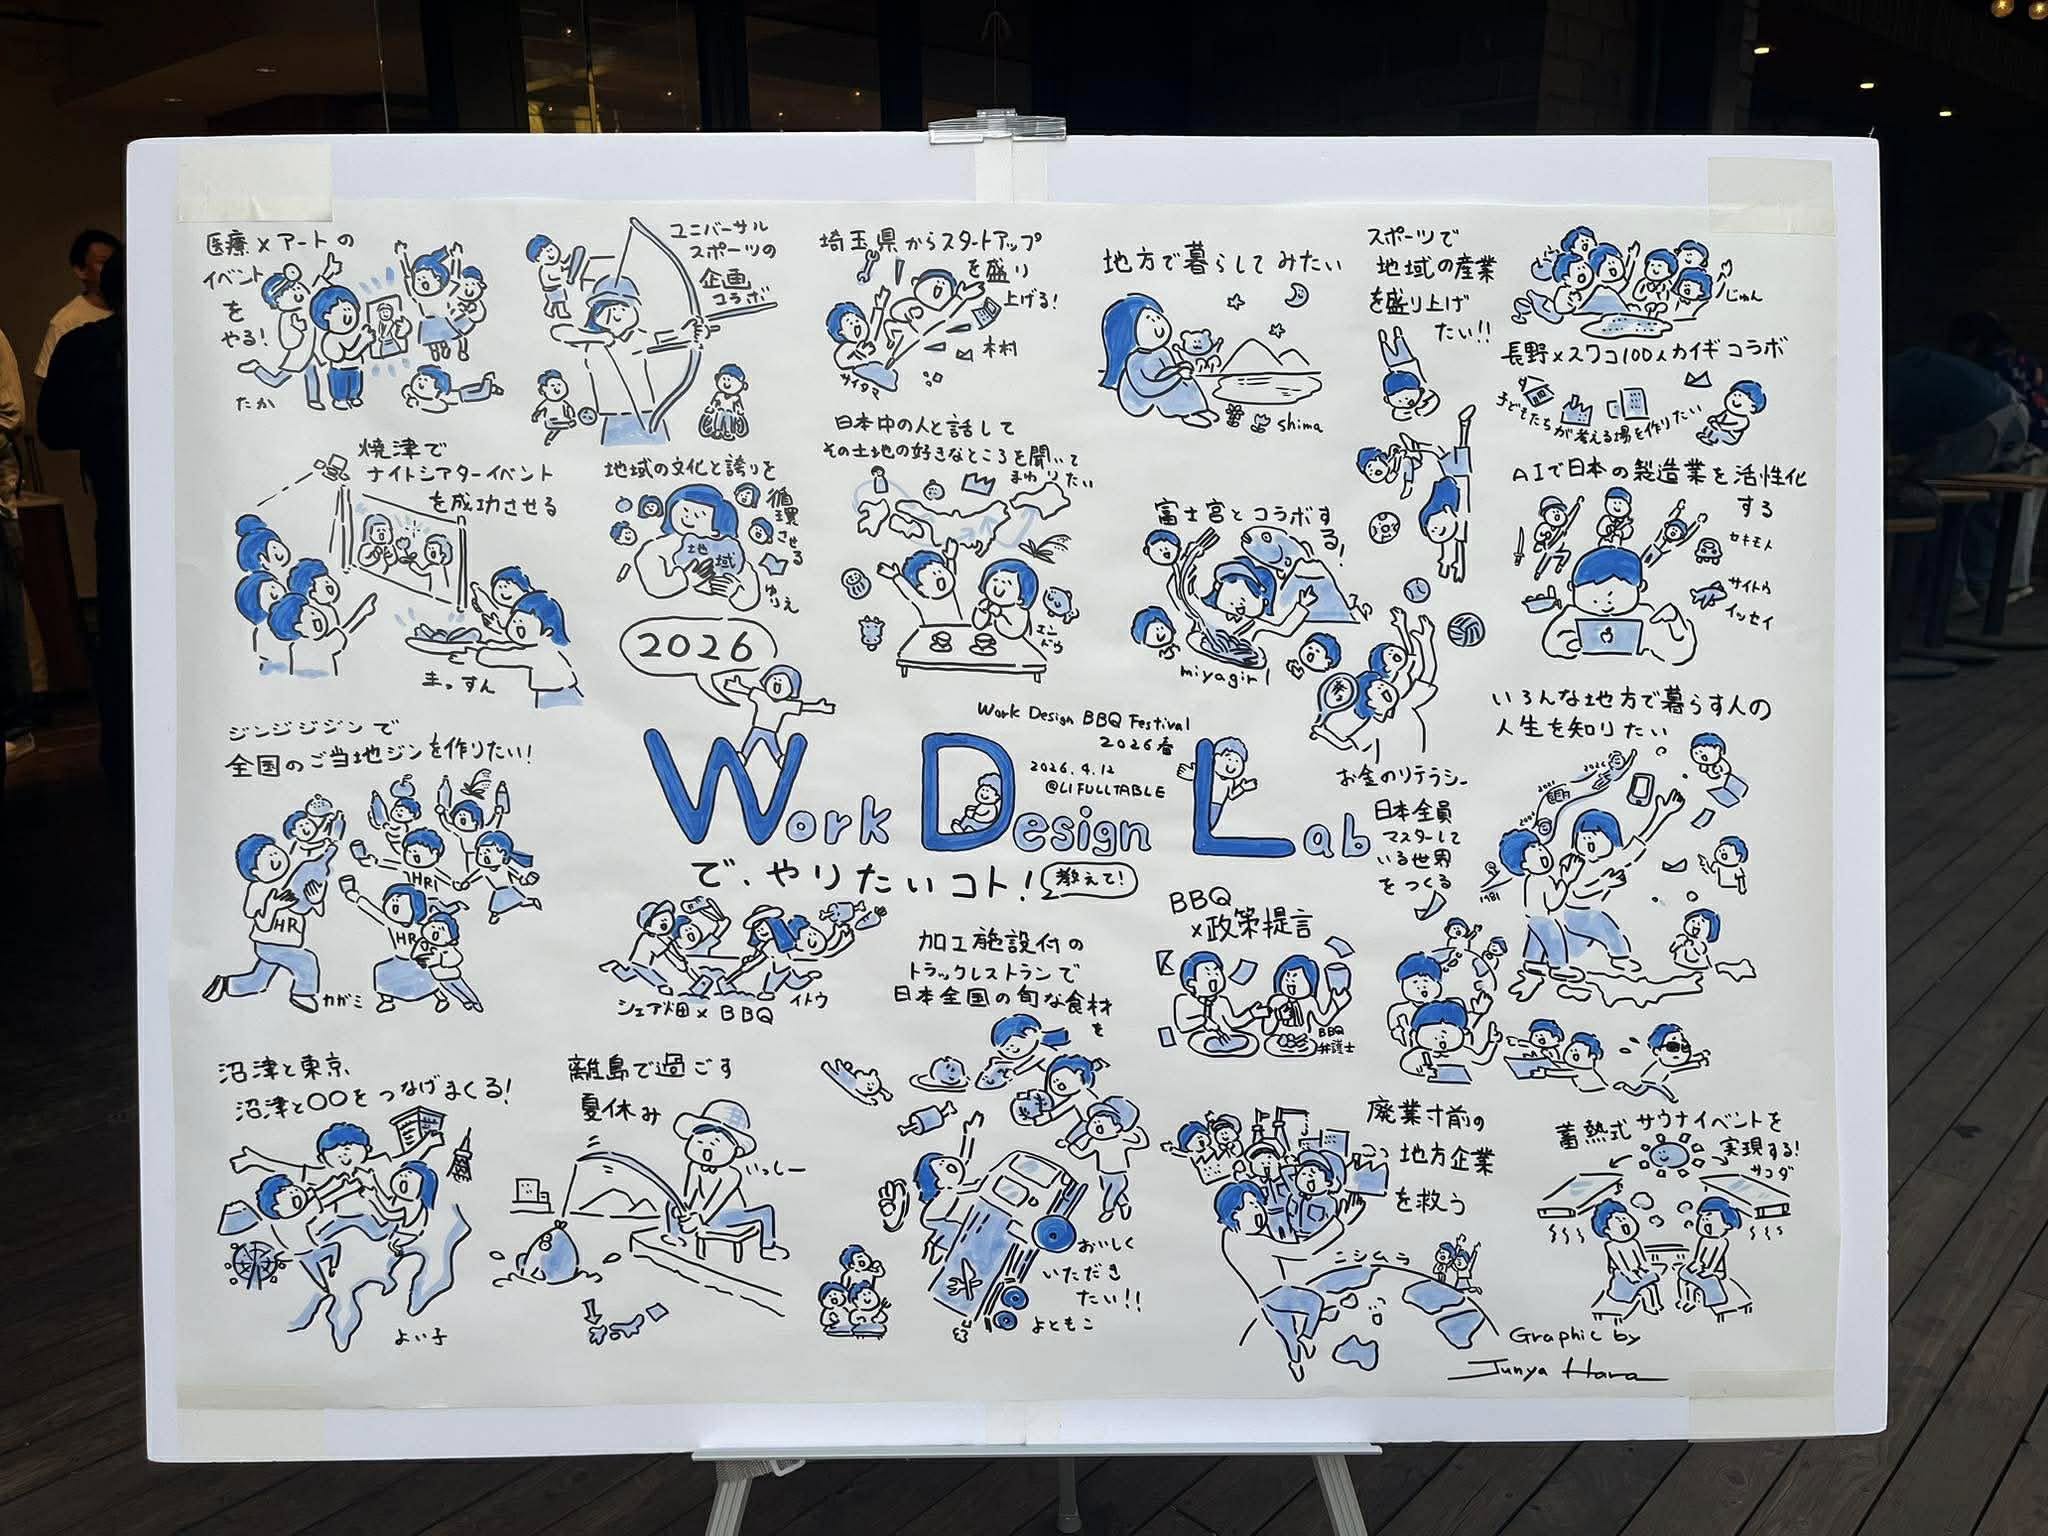 医療×アートの
イベント
を
やる!
たか
ユニバーサル
スポーツの
企画
コラボ
埼玉県からスタートアップ
を盛り
上げる!
木村
サイタマ
地方で暮らしてみたい
shima
スポーツで
地域の産業
を盛り上げ
たい!!
じゅん
長野×スワコ100人カイギコラボ
子どもたちが考える場を作りたい
焼津で
ナイトシアターイベント
を成功させる
まっすん
地域の文化と誇りを
循環
させる
地域
ゆりえ
日本中の人と話して
その土地の好きなところを聞いて
まわりたい
エンドウ
富士宮とコラボす
る!
miyagirl
AIで日本の製造業を活性化
する
セキモト
サイトウ
イッセイ
2026
Work Design BBQ Festival
2026春
2026.4.12
@LIFULLTABLE
Work Design Lab
で、やりたいコト!
教えて!
ジンジジジンで
全国のご当地ジンを作りたい!
HR
HR
HR
カガミ
お金のリテラシー
日本全員
マスターして
いる世界
をつくる
いろんな地方で暮らす人の
人生を知りたい
1981
2026
シェア畑×BBQ
イトウ
加工施設付の
トラックレストランで
日本全国の旬な食材
を
おいしく
いただき
たい!!
よともこ
BBQ
×政策提言
BBQ
弁護士
沼津と東京
沼津と〇〇をつなげまくる!
よい子
離島で過ごす
夏休み
いっしー
廃業寸前の
地方企業
を救う
ニシムラ
蓄熱式サウナイベントを
実現する!
サコダ
Graphic by
Junya Hara